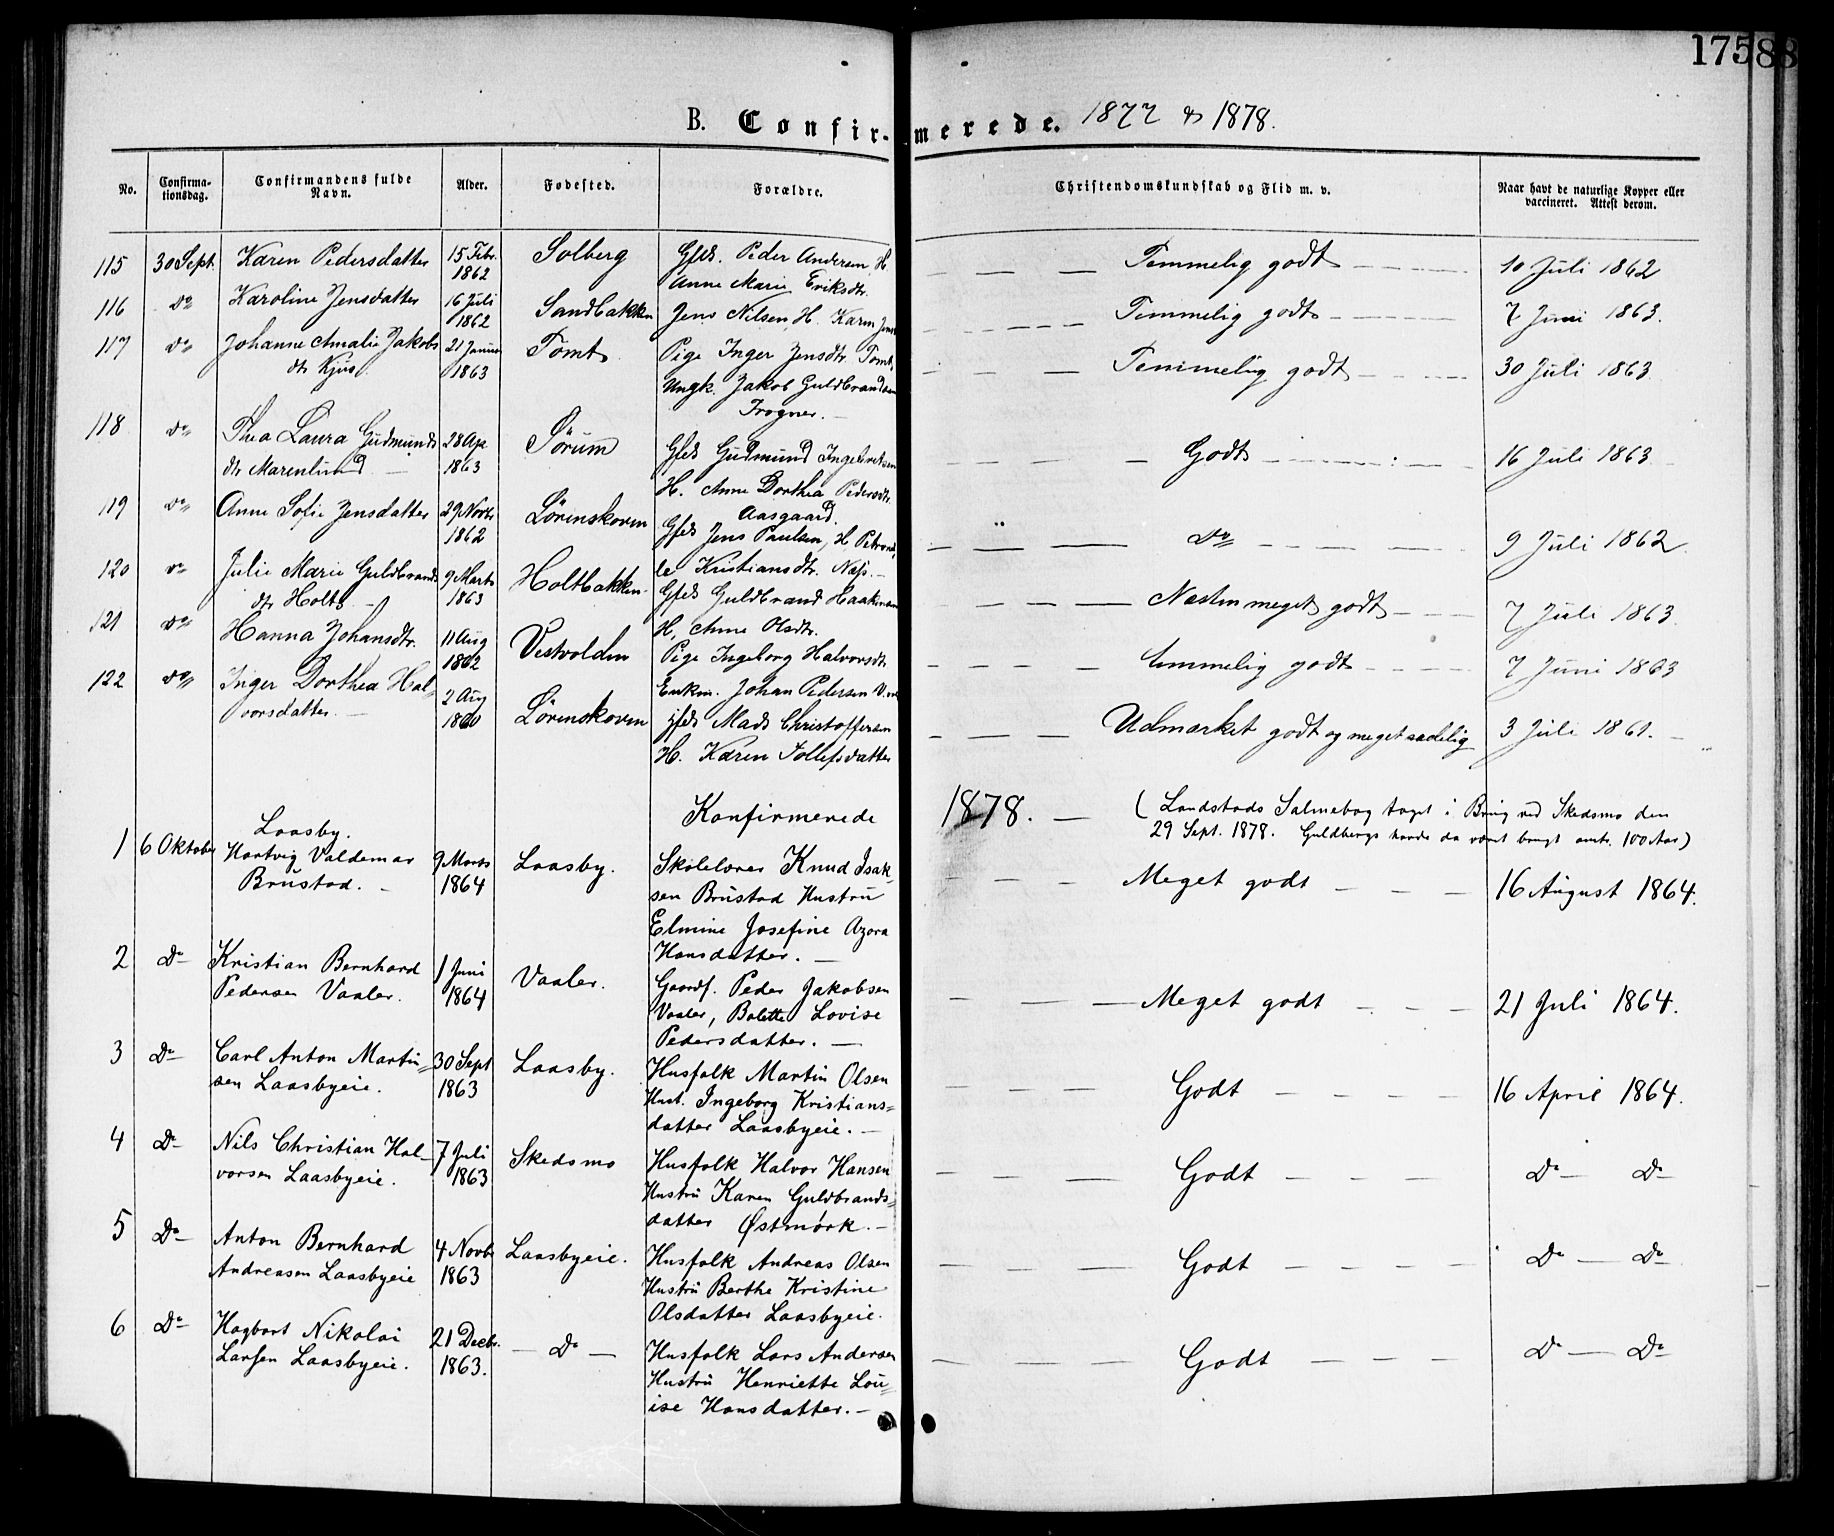 175
88
B. Confirmerede. 1877 & 1878.
No.
Confirmationsdag.
Confirmandens fulde Navn.
Alder.
Fødested.
Forældre.
Christendomskundskab og Flid m. v.
Naar havt de naturlige Kopper eller vaccineret. Attest derom.
115 30 Sept. Karen Pedersdatter 15 Febr. 1862 Solberg Gfdr. Peder Andersen H. Anne Marie Eriksdtr. Temmelig godt 10 Juli 1862
116 do Karoline Jensdatter 16 Juli 1862 Sandbakken Jens Nilsen, H. Karen Temmelig godt 7 Juni 1863.
117 do Johanne Amalie Jakobsdtr Kjus 21 Januar 1863 Tomt Pige Inger Jensdtr. Tomt, Ungk. Jakob Guldbrandsen Frogner. Temmelig godt 30 Juli 1863
118 do Thea Laura Gudmundsdtr Marenlund 28 Ap 1863 Sørum Gfdr Gudmund Ingebretsen H. Anne Dorthea Pedersdtr. Aasgaard. Godt 16 Juli 1863
119 do Anne Sofie Jensdatter 29 Novbr 1862 Lørenskoven Gfdr Jens Paulsen, H Petronelle Kristiansdtr. Næss. do 9 Juli 1862
120 do Julie Marie Guldbrandsdtr Holt 9 Marts 1863 Holtbakken Gfdr Guldbrand Haakensen H. Anne Olsdtr. Næsten meget godt 7 Juli 1863
121 do Hanna Johansdtr. 11 Aug 1862 Vestvolden Pige Ingeborg Halvorsdtr Enkm. Johan Pedersen Temmelig godt 7 Juni 1863
122 do Inger Dorthea Halvorsdatter. 2 Aug 1860 Lørenskoven Gfdr Mads Christoffersen H. Karen Tollefsdatter Udmærket godt og meget sædelig 3 Juli 1861.
Konfirmerede 1878. (Landstads Salmebog taget i Brug ved Skedsmo den
29 Sept. 1878. Guldbergs havde da været brugt omtr. 100 Aar)
1 6 Oktober Laasby. Hartvig Valdemar Brustad. 9 Marts 1864 Laasby. Skolelærer Knud Isaksen Brustad Hustru Elmine Josefine Azora Hansdatter. Meget godt 16 August 1864.
2 Do Kristian Bernhard Pedersen Vaaler. 1 Juni 1864 Vaaler. Gaardf. Peder Jakobsen Vaaler, Bolette Lovise Pedersdatter. Meget godt 21 Juli 1864.
3 Do Carl Anton Martinsen Laasbyeie. 30 Sept 1863 Laasby. Husfolk Martin Olsen Hust. Ingeborg Kristiansdatter Laasbyeie. Godt 16 April 1864.
4 Do Nils Christian Halvorsen Laasbyeie. 7 Juli 1863 Skedsmo Husfolk Halvor Hansen Hustru Karen Guldbrandsdatter Østmørk. Godt Do Do
5 Do Anton Bernhard Andreasen Laasbyeie 4 Novb 1863 Laasbyeie. Husfolk Andreas Olsen Hustru Berthe Kristine Olsdatter Laasbyeie. Godt Do Do
6 Do Hagbart Nikolai Larsen Laasbyeie. 21 Decbr. 1863. Do Husfolk Lars Andersen Hustru Henriette Louise Hansdatter. Godt Do Do